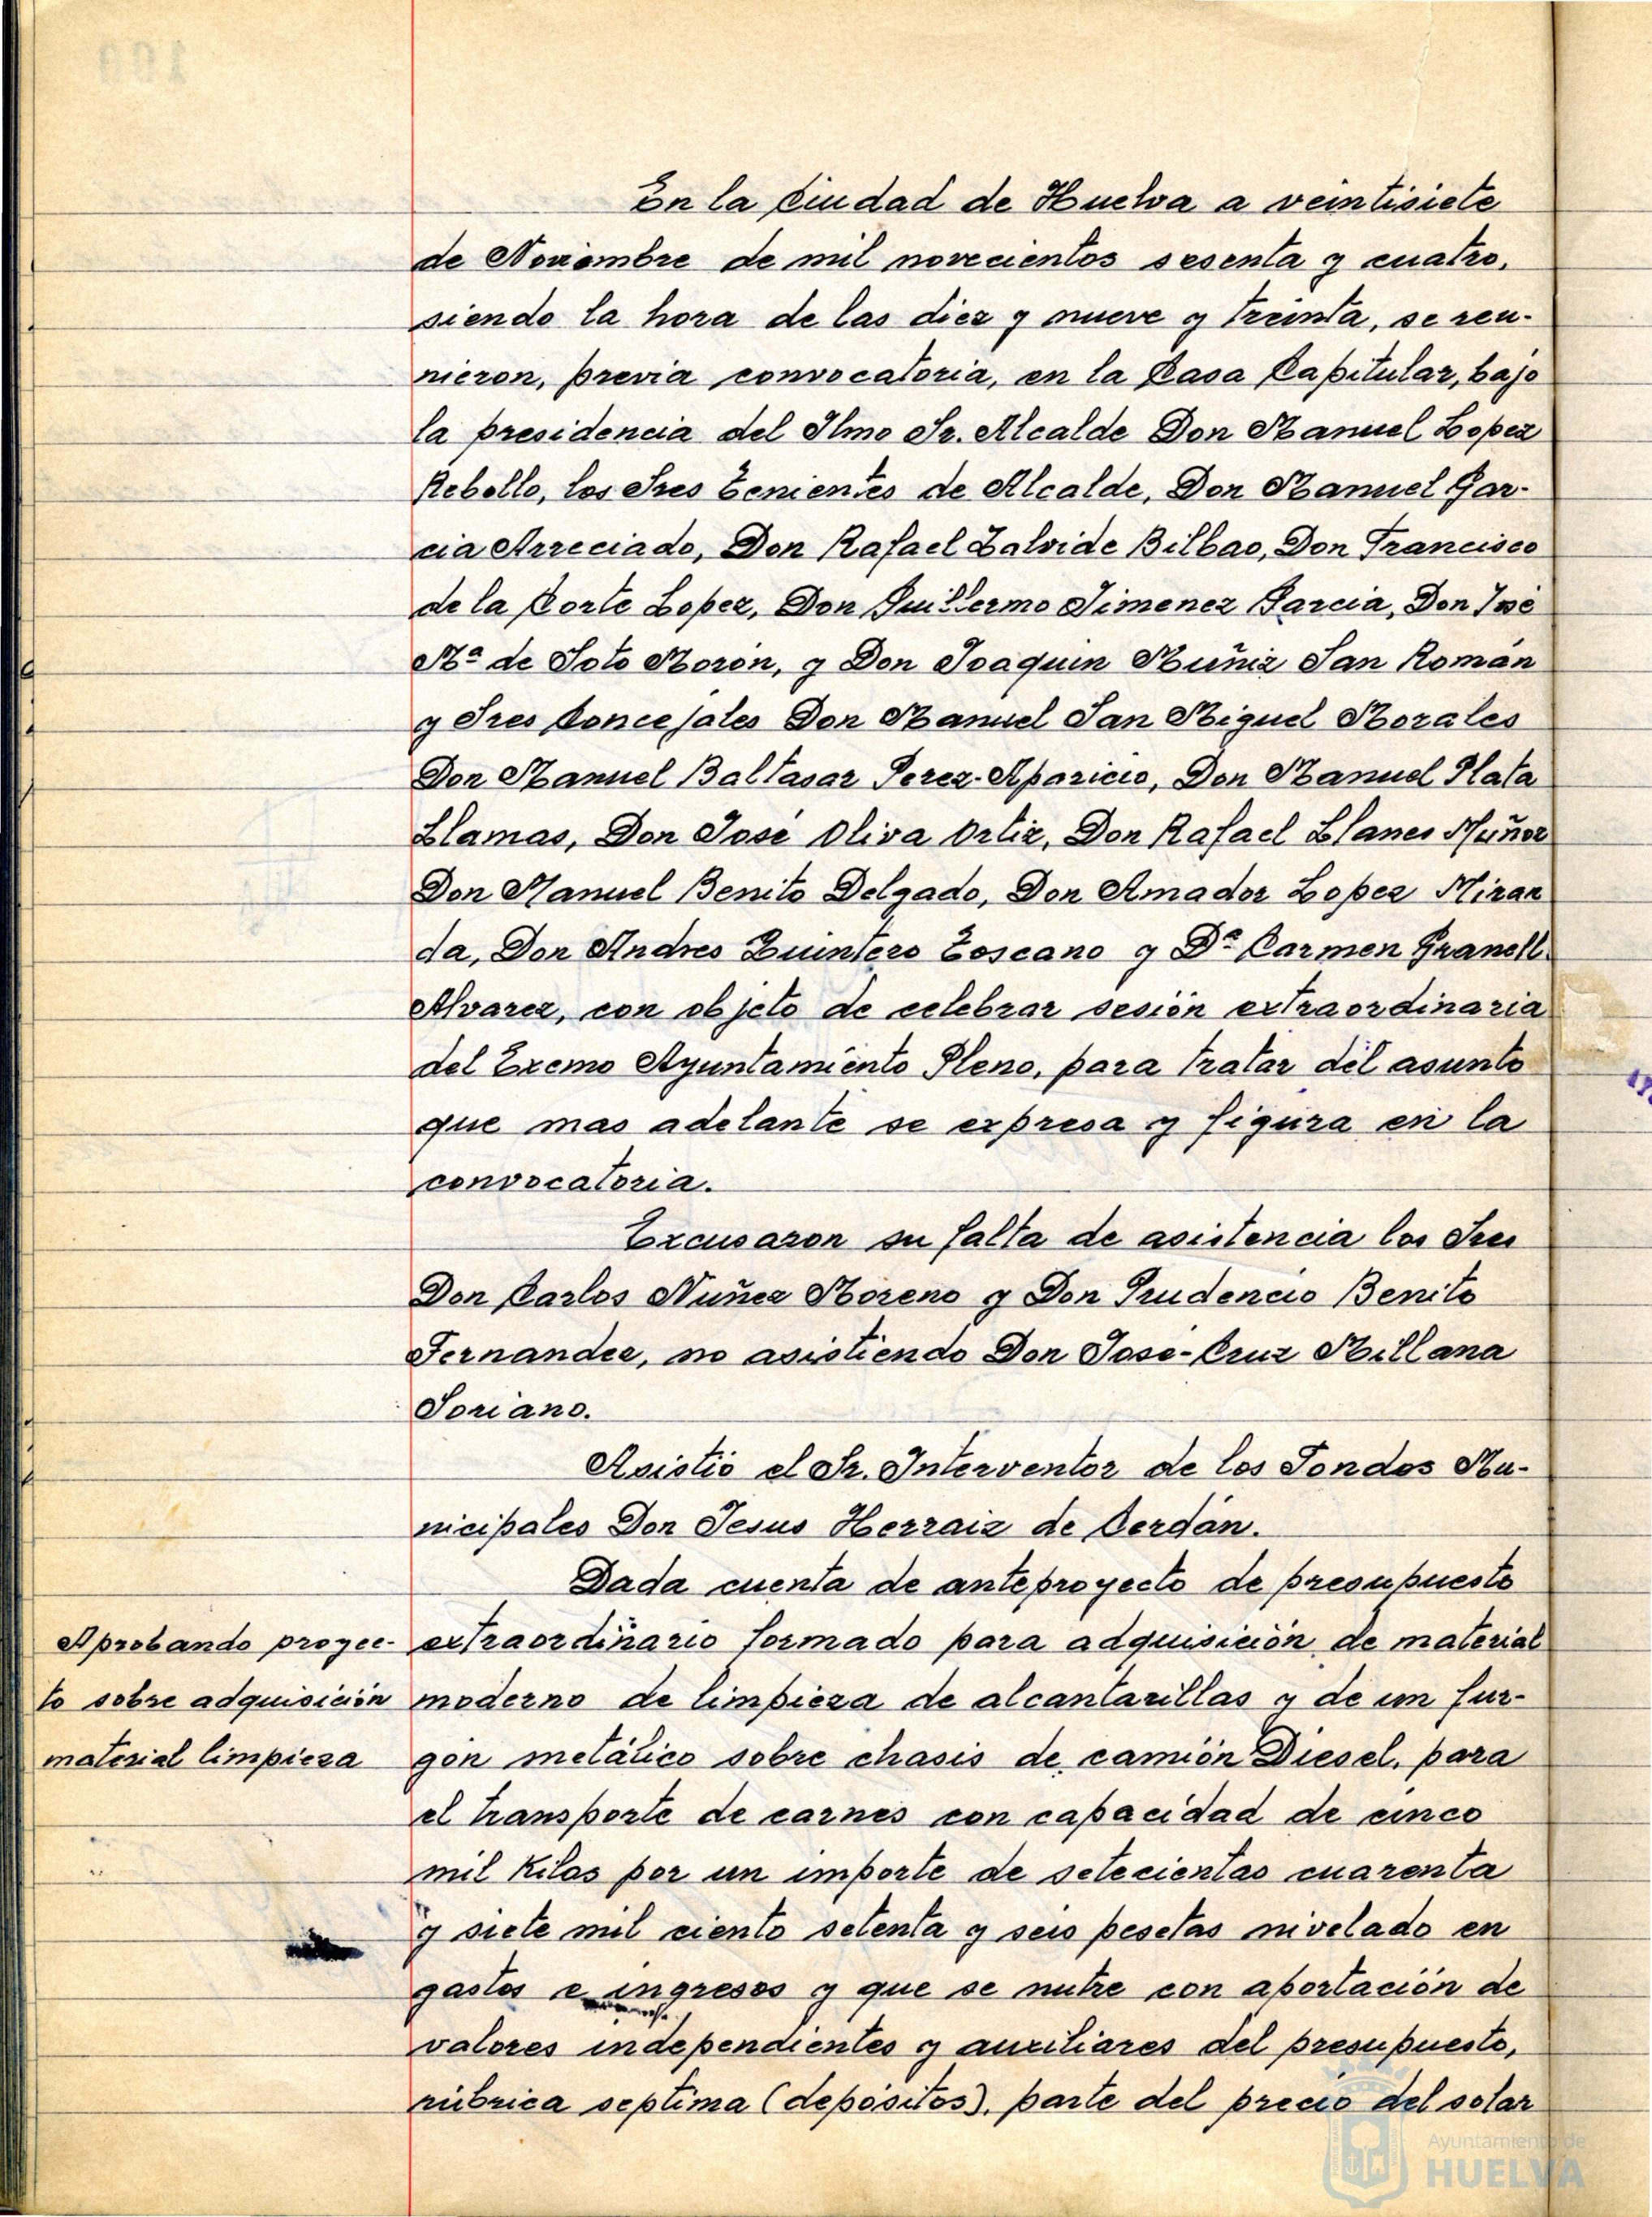 En la Ciudad de Huelva a veintisiete
de Noviembre de mil novecientos sesenta y cuatro,
siendo la hora de las diez y nueve y treinta, se reu-
nieron, previa convocatoria, en la Casa Capitular, bajo
la presidencia del Ilmo Sr. Alcalde Don Manuel Lopez
Rebollo, los Sres Tenientes de Alcalde, Don Manuel Gar-
cia Arreciado, Don Rafael Zalvide Bilbao, Don Francisco
de la Corte Lopez, Don Guillermo Jimenez Garcia, Don José
Mª de Soto Morón, y Don Joaquin Muñiz San Román
y Sres Concejales Don Manuel San Miguel Morales
Don Manuel Baltasar Perez-Aparicio, Don Manuel Plata
Llamas, Don José Oliva Ortiz, Don Rafael Llanes Muñoz
Don Manuel Benito Delgado, Don Amador Lopez Miran
da, Don Andres Quintero Toscano y Dª Carmen Granell
Alvarez, con objeto de celebrar sesión extraordinaria
del Excmo Ayuntamiento Pleno, para tratar del asunto
que mas adelante se expresa y figura en la
convocatoria.
Excusaron su falta de asistencia los Sres
Don Carlos Nuñez Moreno y Don Prudencio Benito
Fernandez, no asistiendo Don José-Cruz Millana
Soriano.
Asistió el Sr. Interventor de los Fondos Mu-
nicipales Don Jesus Herraiz de Cerdán.
Dada cuenta de anteproyecto de presupuesto
Aprobando proyec- extraordinario formado para adquisición de material
to sobre adquisición moderno de limpieza de alcantarillas y de un fur-
material limpieza gón metálico sobre chasis de camión Diesel, para
el transporte de carnes con capacidad de cinco
mil Kilos por un importe de setecientas cuarenta
y siete mil ciento setenta y seis pesetas nivelado en
gastos e ingresos y que se nutre con aportación de
valores independientes y auxiliares del presupuesto,
rúbrica septima (depósitos), parte del precio del solar
Ayuntamiento de
HUELVA